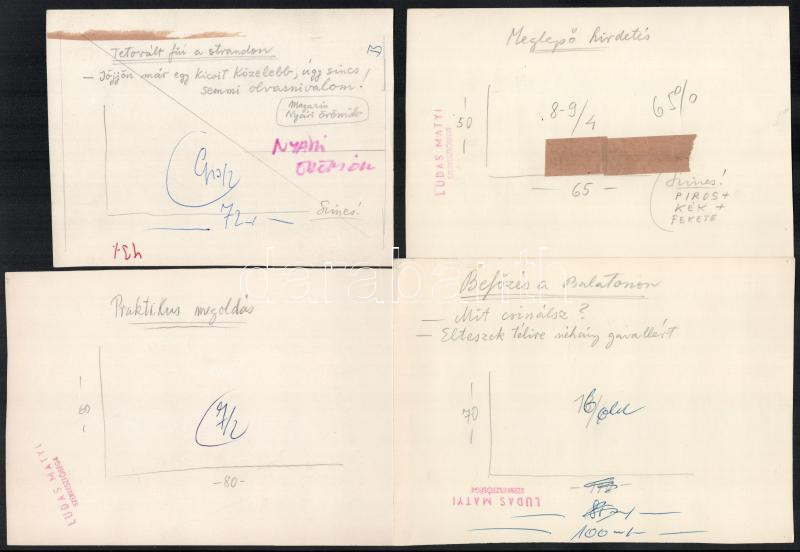 Tetovált fiú a strandon
— Jöjjön már egy kicsit közelebb, úgy sincs
semmi olvasnivalom!
Magazin
Nyári örömök
NYÁRI
72
Színes!
43%
Meglepő hirdetés
50
8-9/4
65%
65
Színes!
PIROS+
KÉK+
FEKETE
LUDAS MATYI
SZERKESZTŐSÉGE
Praktikus megoldás
60
7/2
-80-
LUDAS MATYI
SZERKESZTŐSÉGE
Befőzés a Balatonon
— Mit csinálsz?
— Elteszek télire néhány gavallért
70
16/
LUDAS MATYI
SZERKESZTŐSÉGE
100
darabanth